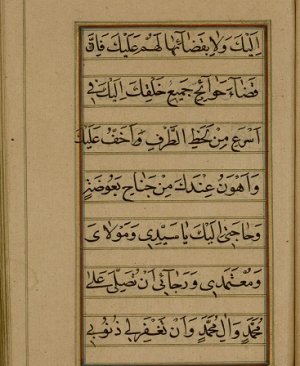 اِلَيْكَ وَلَا بِقَضَآئِهَا لَهُمْ عَلَيْكَ فَاِنَّ
قَضَآءَ حَوَآئِجِ جَمِيعِ خَلْقِكَ اِلَيْكَ فِى
اَسْرَعِ مِنْ لَحْظِ الطَّرْفِ وَاَخَفُّ عَلَيْكَ
وَاَهْوَنُ عِنْدَكَ مِنْ جَنَاحِ بَعُوضَةٍ
وَحَاجَتِى اِلَيْكَ يَا سَيِّدِى وَمَوْلَاىَ
وَمُعْتَمَدِى وَرَجَآئِى اَنْ تُصَلِّىَ عَلٰى
مُحَمَّدٍ وَاٰلِ مُحَمَّدٍ وَاَنْ تَغْفِرَ لِى ذُنُوبِى